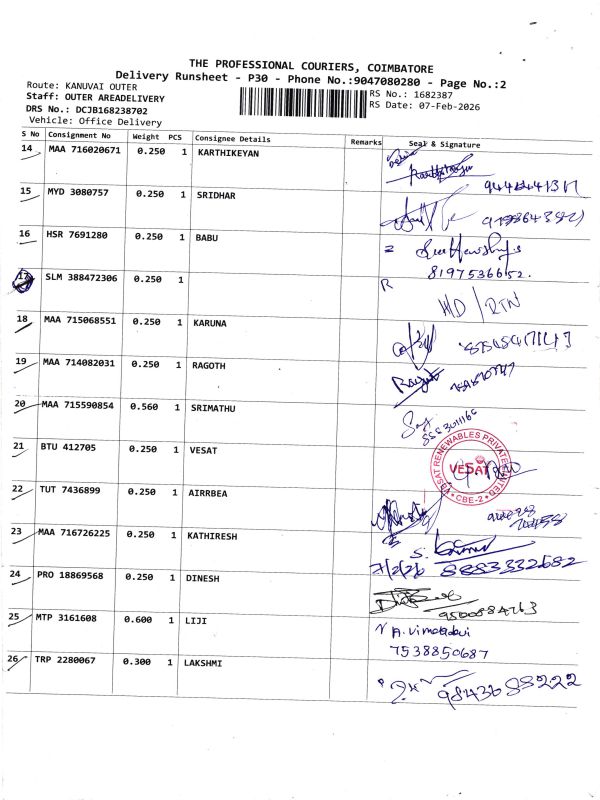 THE PROFESSIONAL COURIERS, COIMBATORE
Delivery Runsheet - P30 - Phone No.:9047080280 - Page No.:2
Route: KANUVAI OUTER
Staff: OUTER AREADELIVERY
DRS No.: DCJB168238702
Vehicle: Office Delivery
RS No.: 1682387
RS Date: 07-Feb-2026
S No Consignment No Weight PCS Consignee Details Remarks Seal & Signature
14 MAA 716020671 0.250 1 KARTHIKEYAN
15 MYD 3080757 0.250 1 SRIDHAR
16 HSR 7691280 0.250 1 BABU
8197536652.
17 SLM 388472306 0.250 1 R
H/D / RTN
18 MAA 715068551 0.250 1 KARUNA
19 MAA 714082031 0.250 1 RAGOTH
20 MAA 715590854 0.560 1 SRIMATHU
21 BTU 412705 0.250 1 VESAT
VESAT RENEWABLES PRIVATE LIMITED
VESAT
CBE-2
22 TUT 7436899 0.250 1 AIRRBEA
23 MAA 716726225 0.250 1 KATHIRESH
S.
7/2/26 8883332682
24 PRO 18869568 0.250 1 DINESH
25 MTP 3161608 0.600 1 LIJI
A. Vimaladevi
7538850687
26 TRP 2280067 0.300 1 LAKSHMI
9843688222